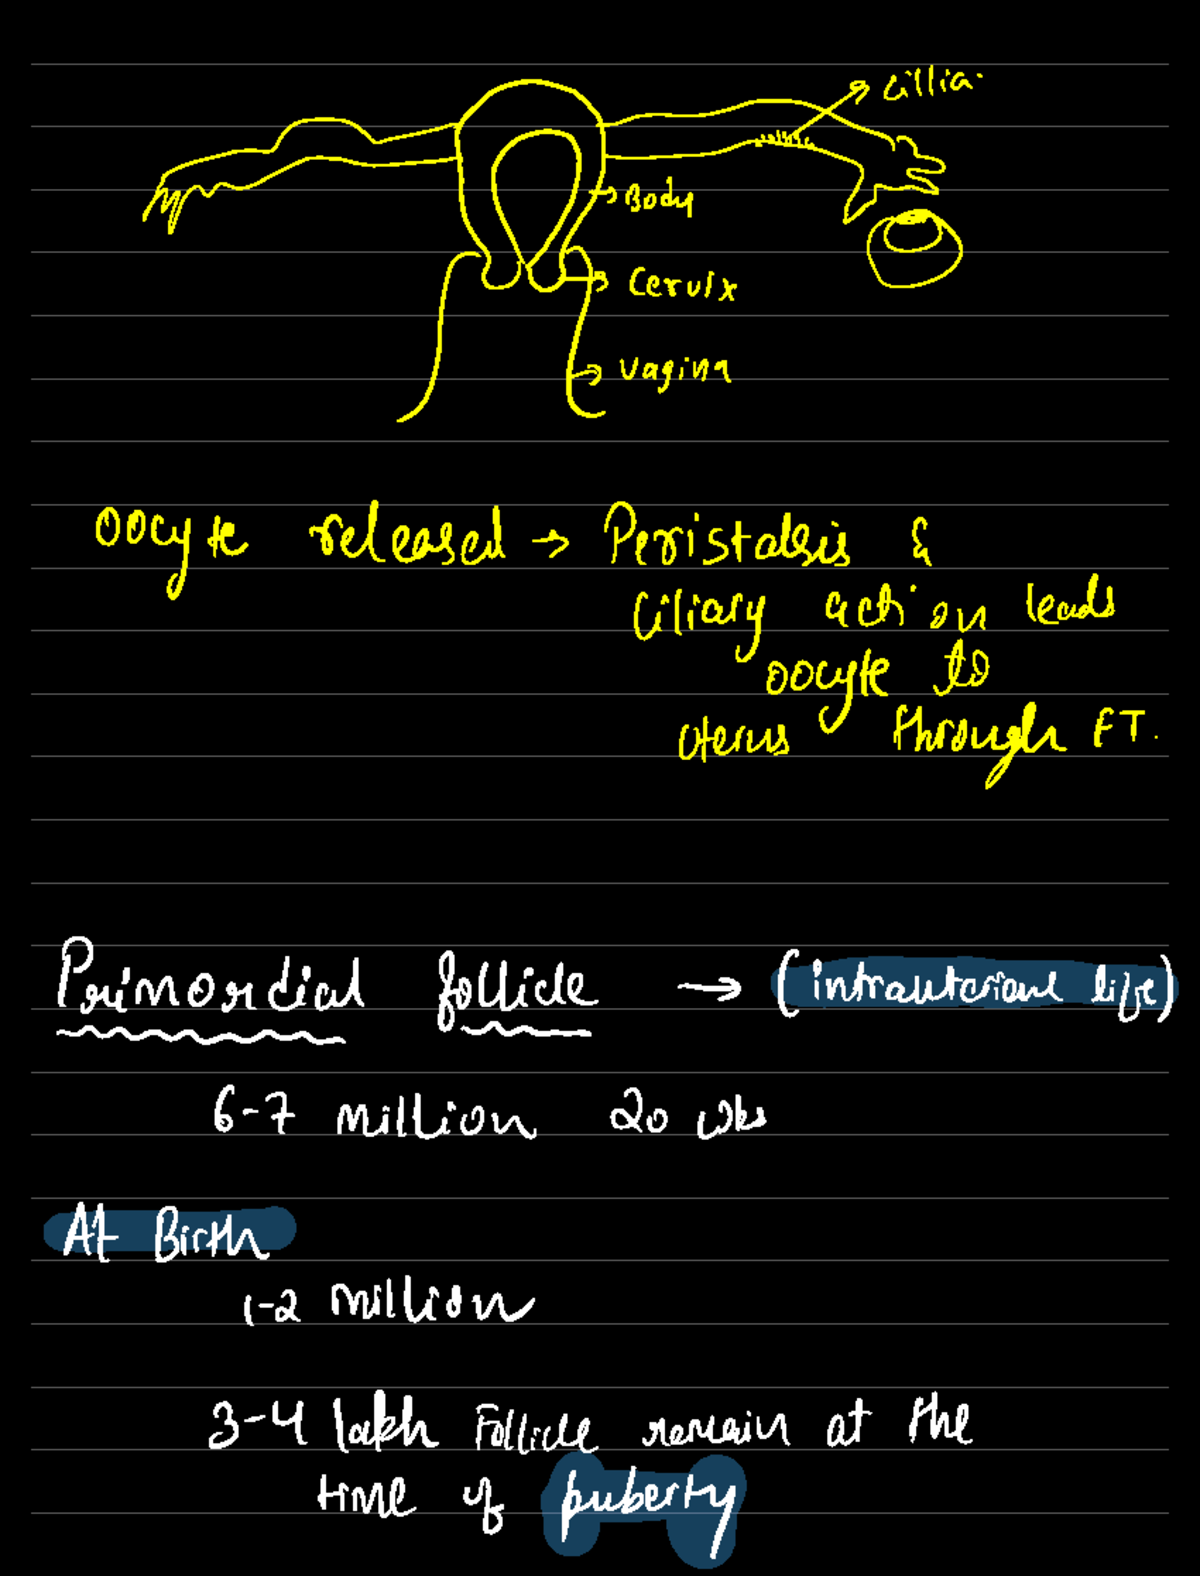 Cillia.
Body
Cervix
Vagina
oocyte released → Peristalsis &
Ciliary action leads
oocyte to
uterus through FT.
Primordial follicle → (intrauterine life)
6-7 million 20 wks
At Birth
1-2 million
3-4 lakh Follicle remain at the
time of puberty